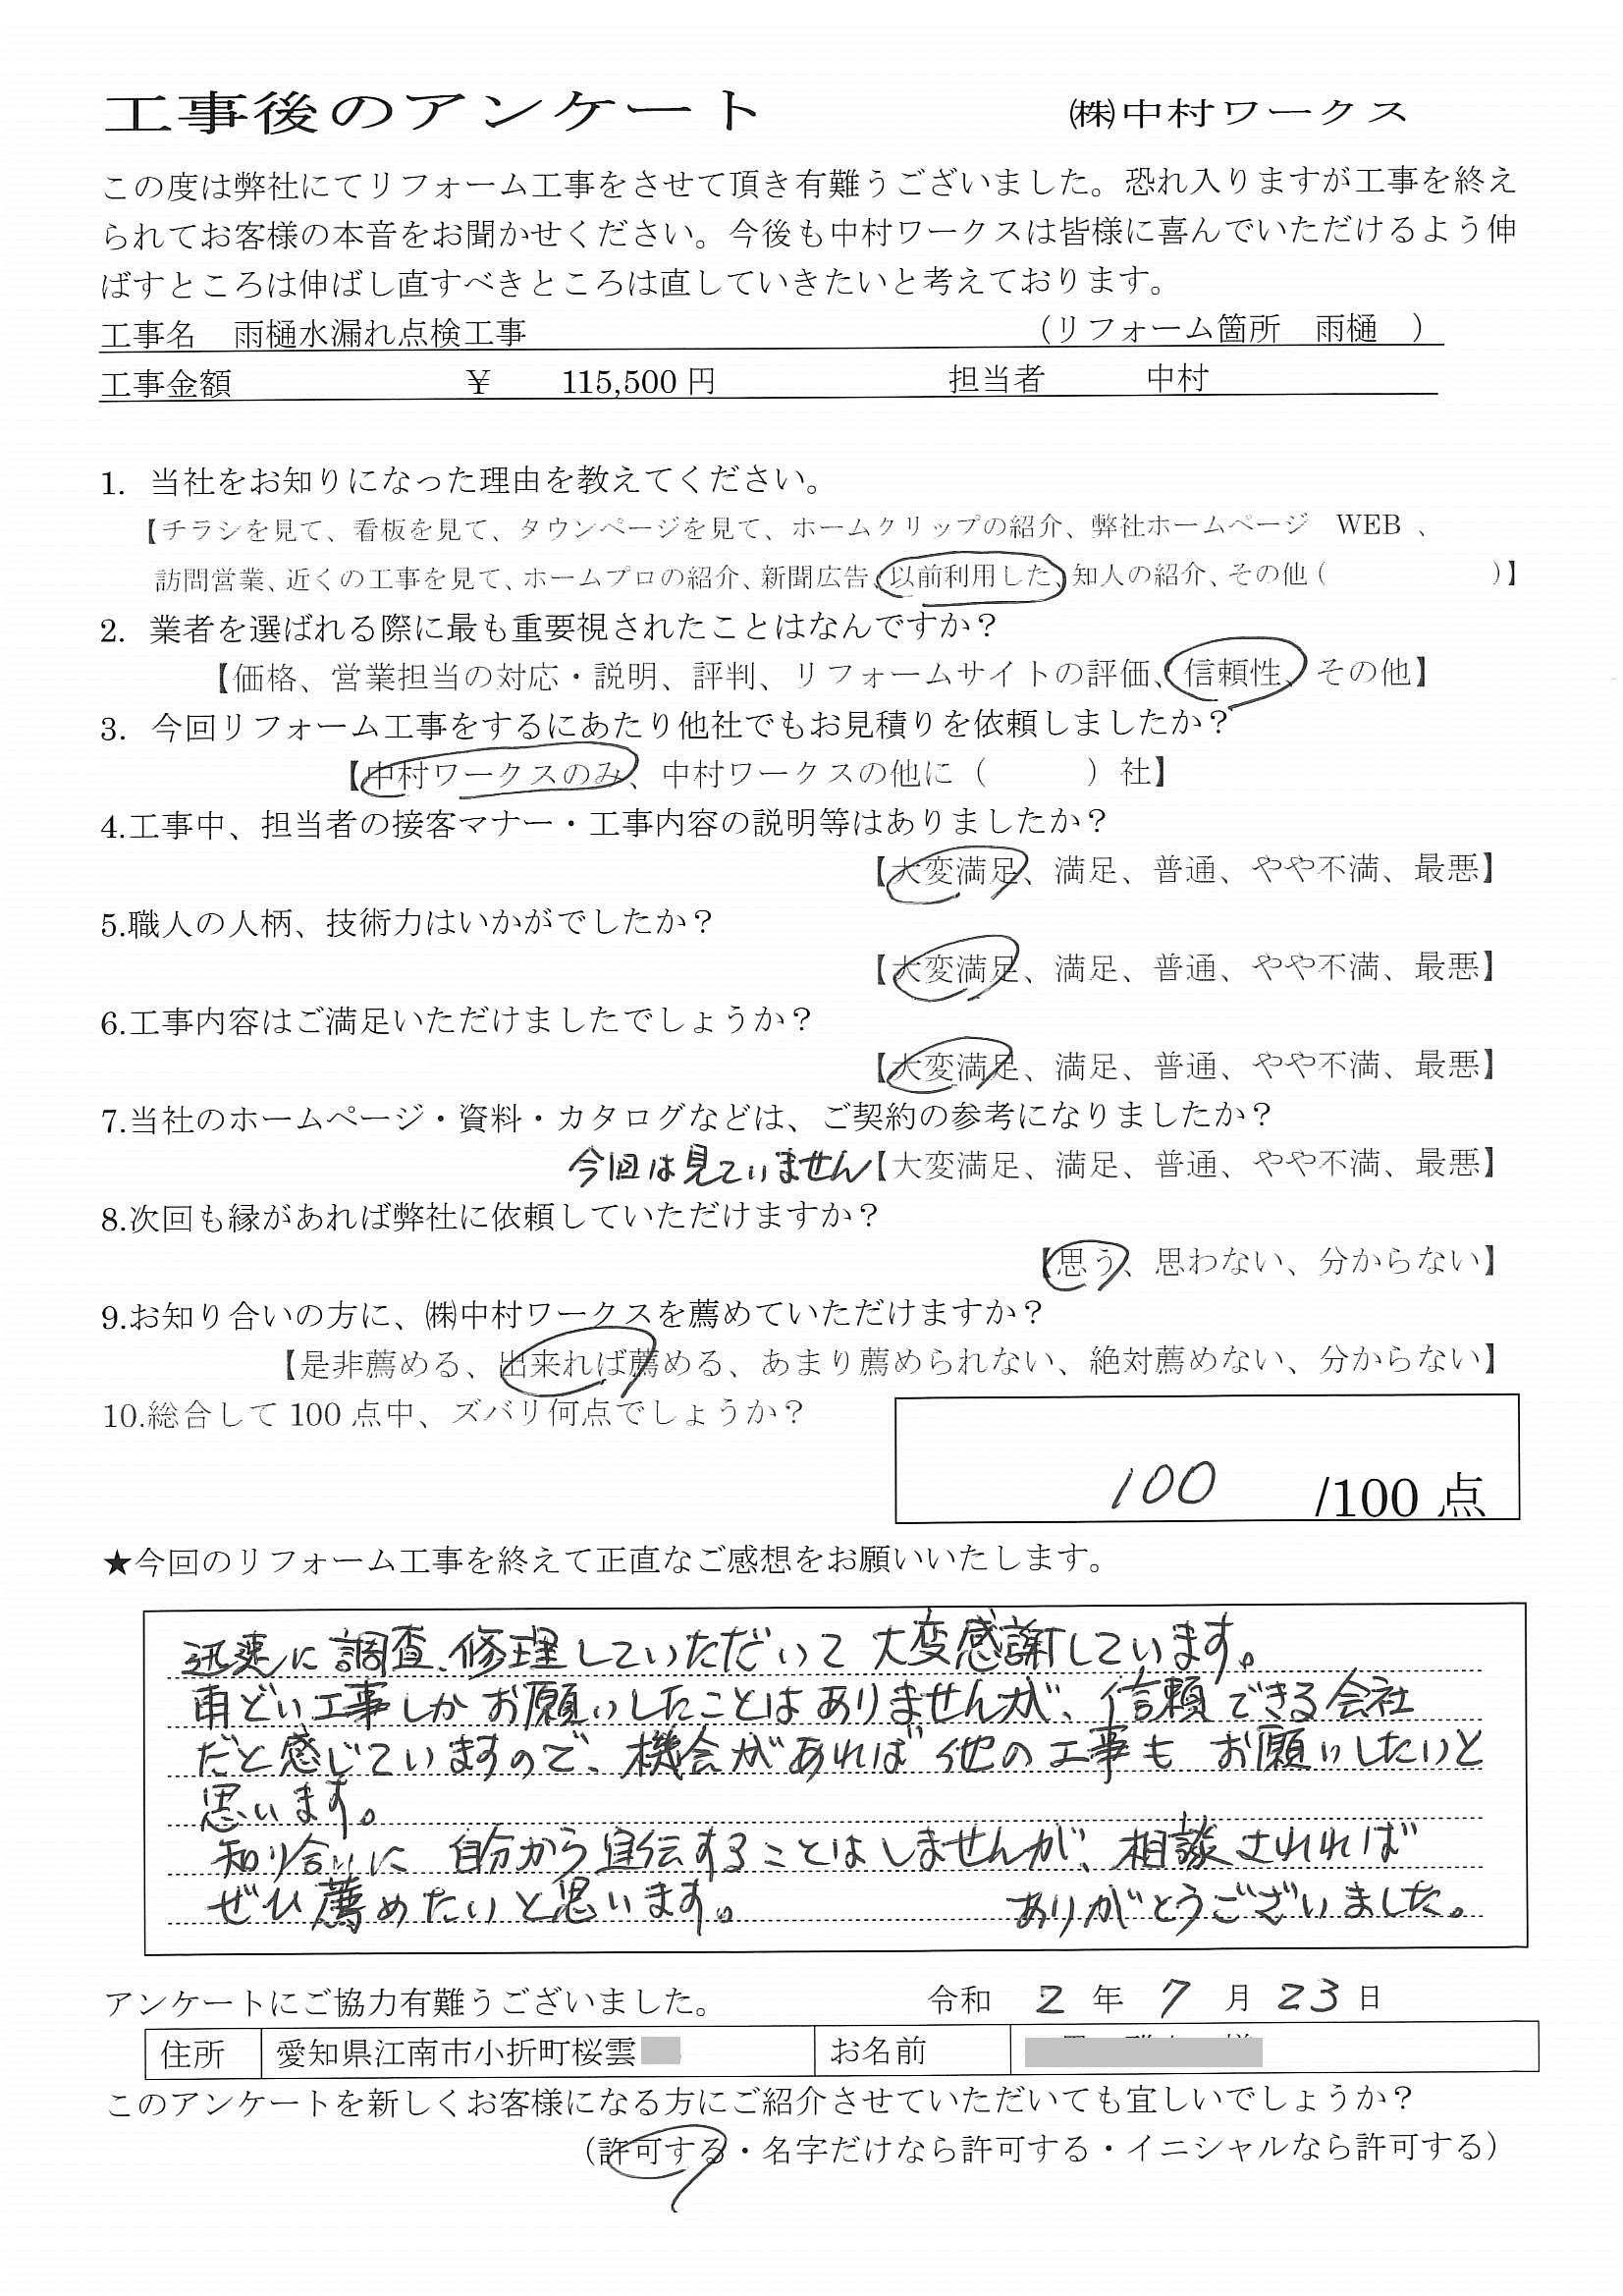 工事後のアンケート ㈱中村ワークス
この度は弊社にてリフォーム工事をさせて頂き有難うございました。恐れ入りますが工事を終え
られてお客様の本音をお聞かせください。今後も中村ワークスは皆様に喜んでいただけるよう伸
ばすところは伸ばし直すべきところは直していきたいと考えております。
工事名 雨樋水漏れ点検工事 (リフォーム箇所 雨樋 )
工事金額 ¥ 115,500 円 担当者 中村
1. 当社をお知りになった理由を教えてください。
【チラシを見て、看板を見て、タウンページを見て、ホームクリップの紹介、弊社ホームページ WEB 、
訪問営業、近くの工事を見て、ホームプロの紹介、新聞広告、以前利用した、知人の紹介、その他( )】
2. 業者を選ばれる際に最も重要視されたことはなんですか?
【価格、営業担当の対応・説明、評判、リフォームサイトの評価、信頼性、その他】
3. 今回リフォーム工事をするにあたり他社でもお見積りを依頼しましたか?
【中村ワークスのみ、中村ワークスの他に( )社】
4.工事中、担当者の接客マナー・工事内容の説明等はありましたか?
【大変満足、満足、普通、やや不満、最悪】
5.職人の人柄、技術力はいかがでしたか?
【大変満足、満足、普通、やや不満、最悪】
6.工事内容はご満足いただけましたでしょうか?
【大変満足、満足、普通、やや不満、最悪】
7.当社のホームページ・資料・カタログなどは、ご契約の参考になりましたか?
今回は見ていません【大変満足、満足、普通、やや不満、最悪】
8.次回も縁があれば弊社に依頼していただけますか?
【思う、思わない、分からない】
9.お知り合いの方に、㈱中村ワークスを薦めていただけますか?
【是非薦める、出来れば薦める、あまり薦められない、絶対薦めない、分からない】
10.総合して 100 点中、ズバリ何点でしょうか?
100 /100 点
★今回のリフォーム工事を終えて正直なご感想をお願いいたします。
迅速に調査、修理していただいて大変感謝しています。
雨どい工事しかお願いしたことはありませんが、信頼できる会社
だと感じていますので、機会があれば他の工事もお願いしたいと
思います。
知り合いに自分から宣伝することはしませんが、相談されれば
ぜひ薦めたいと思います。 ありがとうございました。
アンケートにご協力有難うございました。 令和 2 年 7 月 23 日
住所 愛知県江南市小折町桜雲 お名前
このアンケートを新しくお客様になる方にご紹介させていただいても宜しいでしょうか?
(許可する・名字だけなら許可する・イニシャルなら許可する)